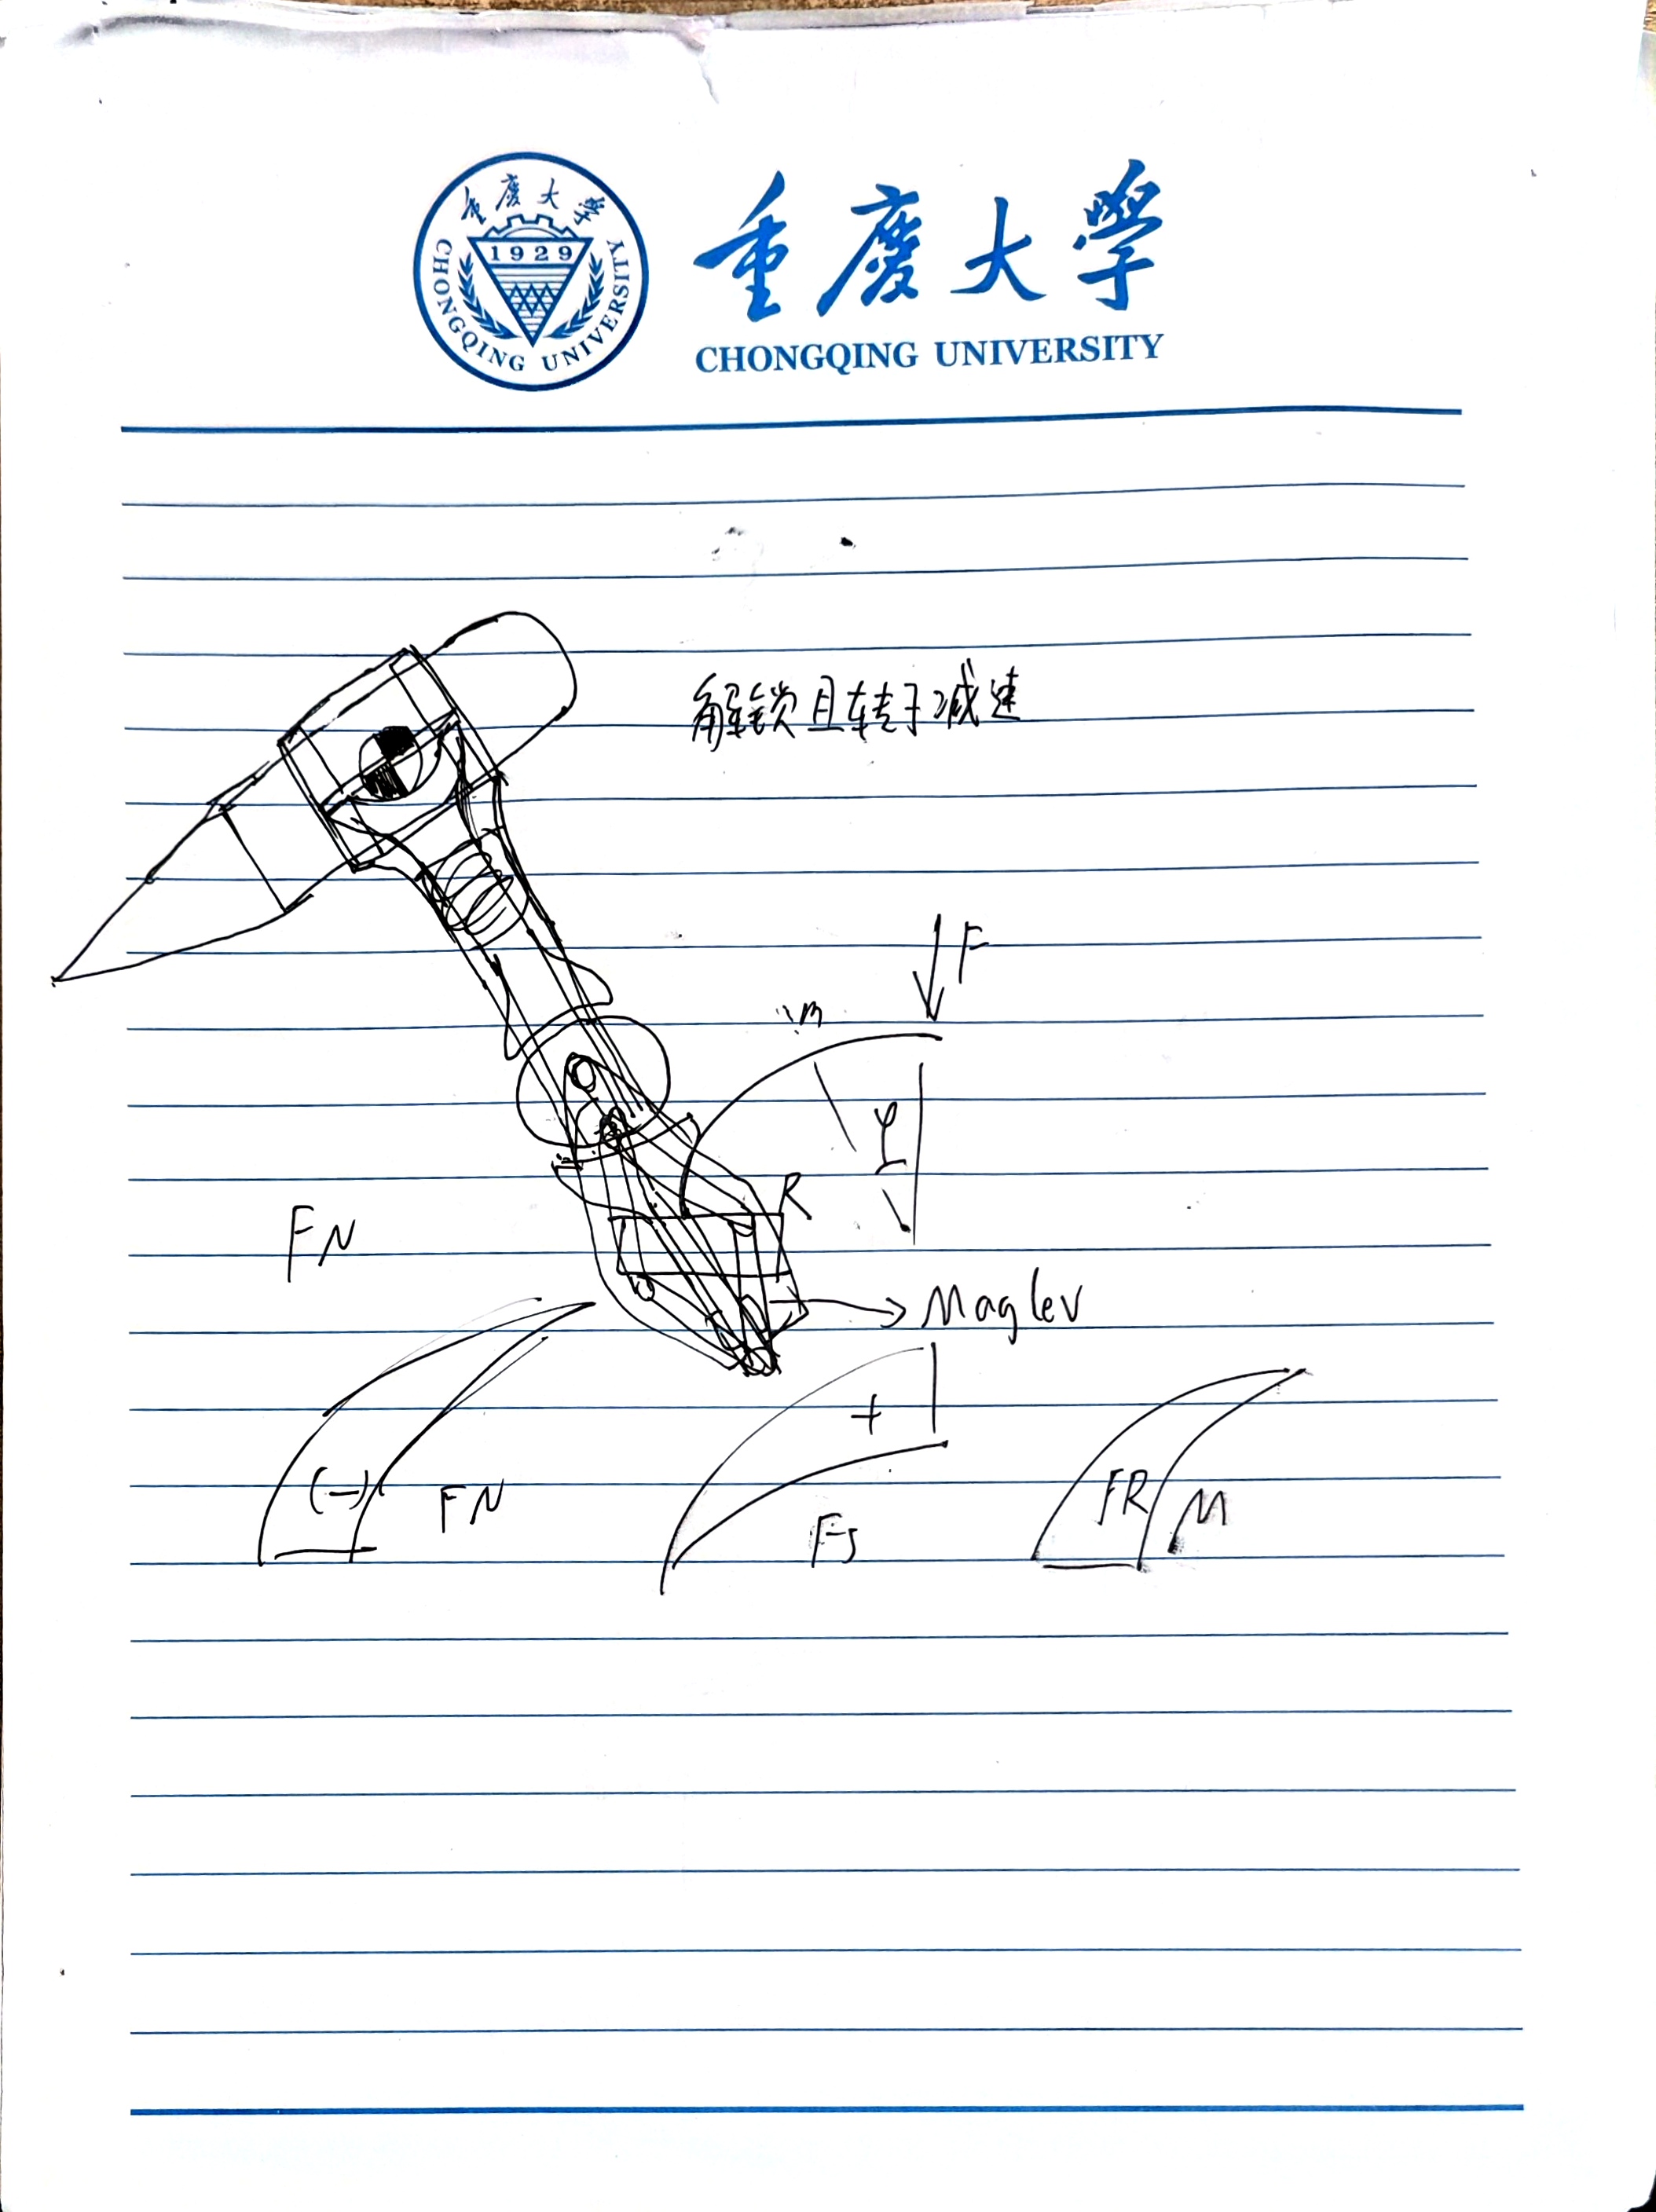 重慶大學
1929
CHONGQING UNIVERSITY
重慶大學
CHONGQING UNIVERSITY
解锁且转子减速
F
m
φ
R
FN
Maglev
+
(-)
FN
FS
FR
M